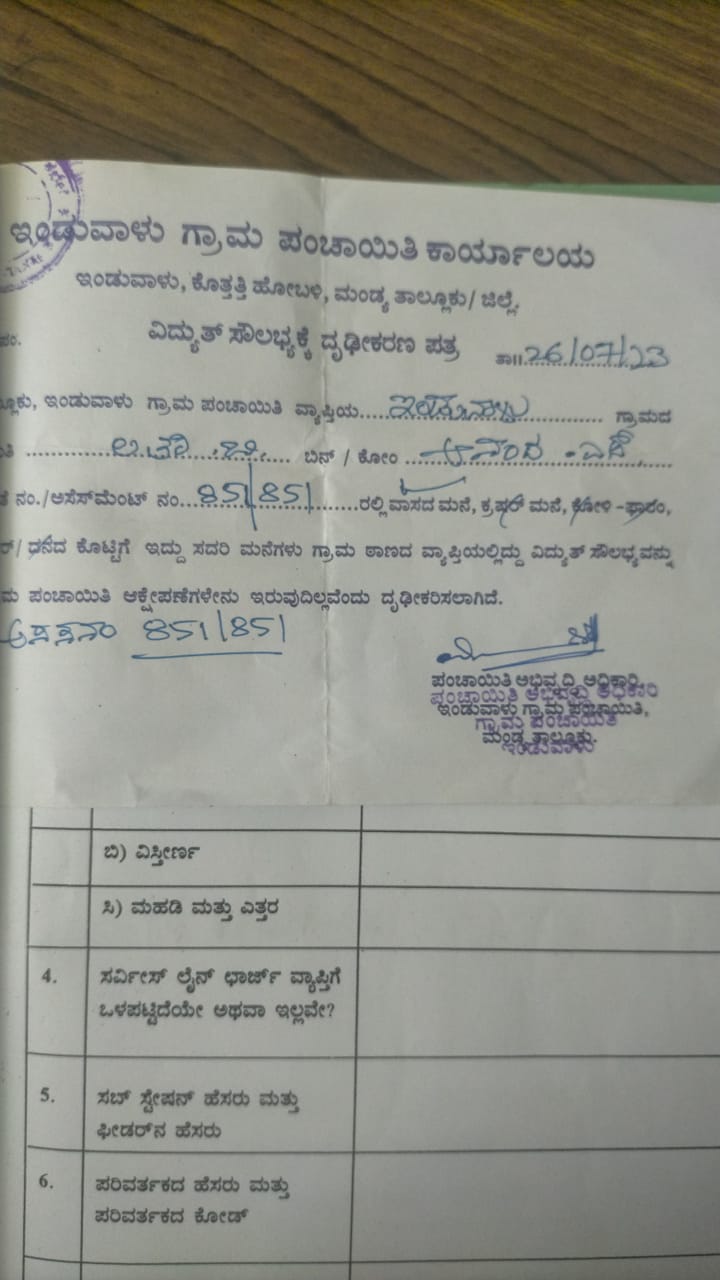 ಇಂಡುವಾಳು ಗ್ರಾಮ ಪಂಚಾಯಿತಿ ಕಾರ್ಯಾಲಯ
ಇಂಡುವಾಳು, ಕೊತ್ತತ್ತಿ ಹೋಬಳಿ, ಮಂಡ್ಯ ತಾಲ್ಲೂಕು/ ಜಿಲ್ಲೆ.
ವಿದ್ಯುತ್ ಸೌಲಭ್ಯಕ್ಕೆ ದೃಢೀಕರಣ ಪತ್ರ
ನಂ. ತಾ॥ 26/07/23
ಲ್ಲೂಕು, ಇಂಡುವಾಳು ಗ್ರಾಮ ಪಂಚಾಯಿತಿ ವ್ಯಾಪ್ತಿಯ.... ಇಂಡುವಾಳು ............ ಗ್ರಾಮದ
............ ಬಿನ್ / ಕೋಂ .. ಆನಂದ - ಎಚ್
ನಂ./ಅಸೆಸ್‌ಮೆಂಟ್ ನಂ... 851/851 .......ರಲ್ಲಿ ವಾಸದ ಮನೆ, ಕ್ರಷರ್ ಮನೆ, ಕೋಳಿ -ಫಾರಂ,
ರ್/ ಧನದ ಕೊಟ್ಟಿಗೆ ಇದ್ದು ಸದರಿ ಮನೆಗಳು ಗ್ರಾಮ ಠಾಣದ ವ್ಯಾಪ್ತಿಯಲ್ಲಿದ್ದು ವಿದ್ಯುತ್ ಸೌಲಭ್ಯವನ್ನು
ಮ ಪಂಚಾಯಿತಿ ಆಕ್ಷೇಪಣೆಗಳೇನು ಇರುವುದಿಲ್ಲವೆಂದು ದೃಢೀಕರಿಸಲಾಗಿದೆ.
851/851
ಪಂಚಾಯಿತಿ ಅಭಿವೃದ್ಧಿ ಅಧಿಕಾರಿ,
ಪಂಚಾಯಿತಿ ಅಭಿವೃದ್ಧಿ ಅಧಿಕಾರಿ
ಇಂಡುವಾಳು ಗ್ರಾಮ ಪಂಚಾಯಿತಿ,
ಗ್ರಾಮ ಪಂಚಾಯಿತಿ
ಮಂಡ್ಯ ತಾಲ್ಲೂಕು.
ಇಂಡುವಾಳು
ಬಿ) ವಿಸ್ತೀರ್ಣ
ಸಿ) ಮಹಡಿ ಮತ್ತು ಎತ್ತರ
4. ಸರ್ವೀಸ್ ಲೈನ್ ಛಾರ್ಜ್ ವ್ಯಾಪ್ತಿಗೆ
ಒಳಪಟ್ಟಿದೆಯೇ ಅಥವಾ ಇಲ್ಲವೇ?
5. ಸಬ್ ಸ್ಟೇಷನ್ ಹೆಸರು ಮತ್ತು
ಫೀಡರ್‌ನ ಹೆಸರು
6. ಪರಿವರ್ತಕದ ಹೆಸರು ಮತ್ತು
ಪರಿವರ್ತಕದ ಕೋಡ್